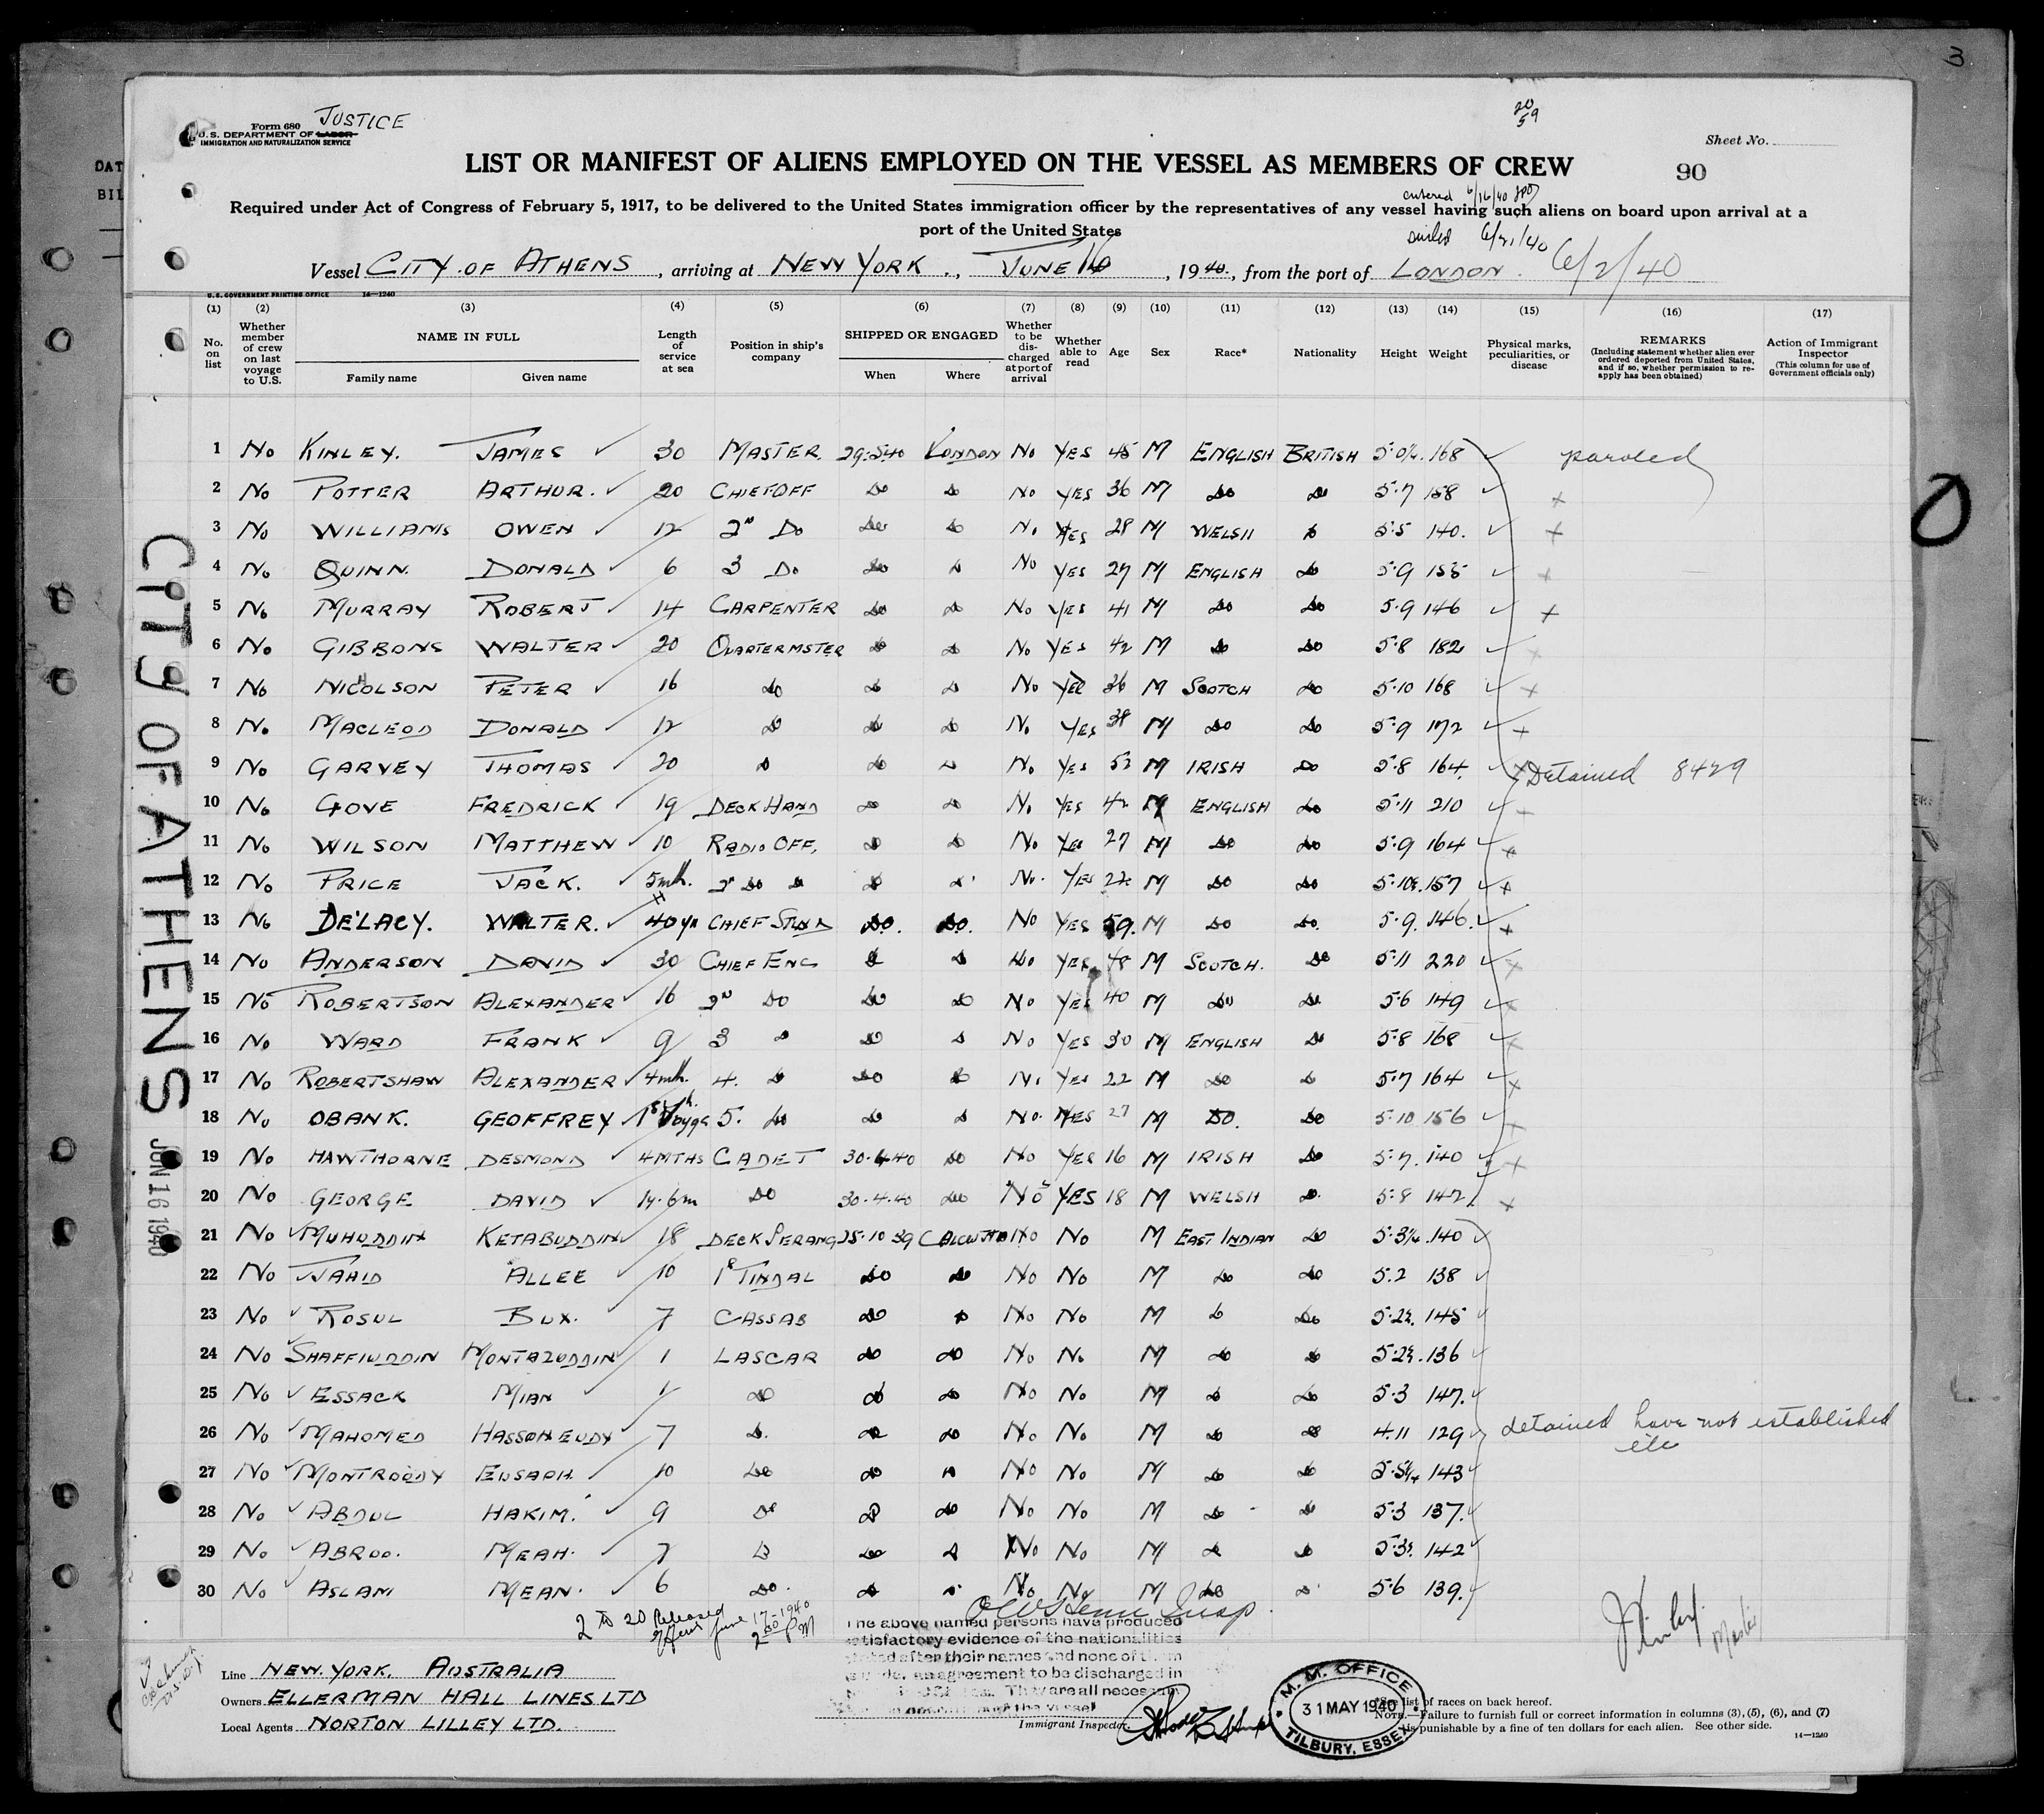 3
DAT
BIL
Form 680 JUSTICE
U.S. DEPARTMENT OF LABOR
IMMIGRATION AND NATURALIZATION SERVICE
20
59
Sheet No.
LIST OR MANIFEST OF ALIENS EMPLOYED ON THE VESSEL AS MEMBERS OF CREW
90
entered 6/16/40
Required under Act of Congress of February 5, 1917, to be delivered to the United States immigration officer by the representatives of any vessel having such aliens on board upon arrival at a
port of the United States
sailed 6/21/40
Vessel CITY OF ATHENS, arriving at NEW YORK, JUNE 16, 1940, from the port of LONDON. 6/2/40
U.S. GOVERNMENT PRINTING OFFICE 14—1240
(1) (2) (3) (4) (5) (6) (7) (8) (9) (10) (11) (12) (13) (14) (15) (16) (17)
No. on list
Whether member of crew on last voyage to U.S.
NAME IN FULL
Family name Given name
Length of service at sea
Position in ship's company
SHIPPED OR ENGAGED
When Where
Whether to be discharged at port of arrival
Whether able to read
Age
Sex
Race*
Nationality
Height
Weight
Physical marks, peculiarities, or disease
REMARKS
(Including statement whether alien ever ordered deported from United States, and if so, whether permission to reapply has been obtained)
Action of Immigrant Inspector
(This column for use of Government officials only)
1 No KINLEY. JAMES 30 MASTER. 29.5.40 LONDON No YES 45 M ENGLISH BRITISH 168 paroled
2 No POTTER ARTHUR. 20 CHIEF OFF Do Do No YES 36 M Do Do 5.7 158
3 No WILLIAMS OWEN 12 2ND Do Do Do No YES 28 M WELSH Do 5.5 140.
4 No QUINN. DONALD 6 3 Do Do Do No YES 27 M ENGLISH Do 5.9 155
5 No MURRAY ROBERT 14 CARPENTER Do Do No YES 41 M Do Do 5.9 146
6 No GIBBONS WALTER 20 QUARTERMSTER Do Do No YES 42 M Do Do 5.8 182
7 No NICHOLSON PETER 16 Do Do Do No YES 36 M SCOTCH Do 5.10 168
8 No MACLEOD DONALD 12 Do Do Do No YES 38 M Do Do 5.9 172
9 No GARVEY THOMAS 20 Do Do Do No YES 52 M IRISH Do 5.8 164. Detained 8429
10 No GOVE FREDRICK 19 DECK HAND Do Do No YES 42 M ENGLISH Do 5.11 210
11 No WILSON MATTHEW 10 RADIO OFF. Do Do No Yes 27 M Do Do 5.9 164
12 No PRICE JACK. 5mth. 2nd Do Do Do Do No. YES 22 M Do Do 157
13 No DELACY. WALTER. 40 yr CHIEF STWD Do. Do. No YES 59. M Do Do. 5.9. 146.
14 No ANDERSON DAVID 30 CHIEF ENG Do Do No YES 48 M SCOTCH. Do 5.11 220
15 No ROBERTSON ALEXANDER 16 2ND Do Do Do No YES 40 M Do Do 5.6 149
16 No WARD FRANK 9 3 Do Do Do No YES 30 M ENGLISH Do 5.8 168
17 No ROBERTSHAW ALEXANDER 4mth. 4. Do Do Do No. YES 22 M Do Do 5.7 164
18 No OBANK. GEOFFREY 1st Voyge 5. Do Do Do No. YES 27 M Do. Do 5.10 156
19 No HAWTHORNE DESMOND 4MTHS CADET 30.4.40 Do No YES 16 M IRISH Do 5.7. 140
20 No GEORGE DAVID 1y.6m Do 30.4.40 Do No YES 18 M WELSH Do. 5.8 142
21 No MUHUDDIN KETABUDDIN 18 DECK SERANG 25.10 39 CALCUTTA No No M EAST INDIAN Do 140
22 No WAHID ALLEE 10 1st TINDAL Do Do No No M Do Do 5.2 138
23 No ROSUL BUX. 7 CASSAB Do Do No No M Do Do 145
24 No SHAFFIUDDIN MONTAZUDDIN 1 LASCAR Do Do No No M Do Do 136
25 No ESSACK MIAN 1 Do Do Do No No M Do Do 5.3 147.
26 No MAHOMED 7 Do. Do Do No No M Do Do 4.11 129 detained have not established
etc
27 No EUSAPH. 10 Do Do Do No No M Do Do 143
28 No ABDUL HAKIM. 9 Do Do Do No No M Do Do 5.3 137.
29 No ABROO. MEAH. 7 Do Do Do No No M Do Do 142
30 No ASLAM MEAN. 6 Do. Do Do No No M Do Do 5.6 139.
2 to 20 Released June 17-1940 2 00 PM
CITY OF ATHENS
JUN 16 1940
The above named persons have produced
satisfactory evidence of the nationalities
stated after their names and none of them
agreement to be discharged in
They are all necessary
of the vessel
J Kinley. Master
Line NEW YORK. AUSTRALIA
Owners ELLERMAN HALL LINES LTD
Local Agents NORTON LILLEY LTD.
Immigrant Inspector.
M. M. OFFICE
31 MAY 1940
TILBURY, ESSEX
*See list of races on back hereof.
NOTE.—Failure to furnish full or correct information in columns (3), (5), (6), and (7)
is punishable by a fine of ten dollars for each alien. See other side.
14—1240